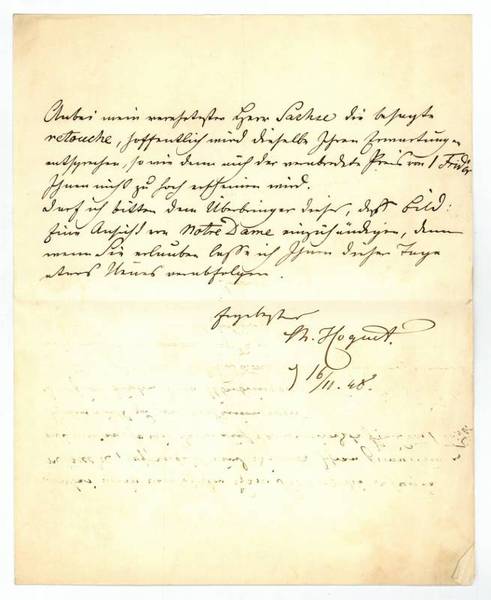 Anbei mein verehrtester Herr Sachse die besagte
retouche, hoffentlich wird dieselbe Ihren Erwartungen
entsprechen, so wie denn auch der verabredete Preis von 1 Frid'or
Ihnen nicht zu hoch erscheinen wird.
Darf ich bitten dem Überbringer dieses, das Bild:
Eine Ansicht von Notre Dame einzuhändigen, denn
wenn Sie erlauben lasse ich Ihnen dieser Tage
etwas Neues verabfolgen.
Ergebenster
Ch. Hoguet.
16/11. 48.